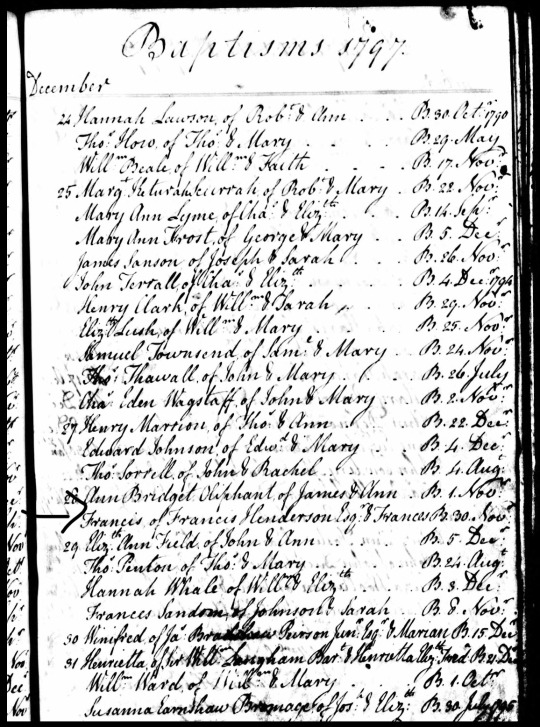 Baptisms 1797.
December
24 Hannah Lawson, of Robt. & Ann B. 30. Octr. 1790
Thos. How, of Thos. & Mary B. 29. May
Willm. Beale, of Willm. & Faith B. 17. Novr.
25 Margt. of Robt. & Mary B. 22. Novr.
Mary Ann Lyme, of Chas. & Elizth. B. 14. Sepr.
Mary Ann Frost, of George & Mary B. 5. Decr.
James Sanson, of Joseph & Sarah B. 26. Novr.
John Terrall, of Chas. & Elizth. B. 4. Decr. 1794
Henry Clark, of Willm. & Sarah B. 29. Novr.
Elizth. Lush, of Willm. & Mary B. 25. Novr.
Samuel Townsend, of Saml. & Mary B. 24. Novr.
Thos. Thawall, of John & Mary B. 26. July
Chas. Eden Wagstaff, of John & Mary B. 2. Novr.
27 Henry Marsion, of Thos. & Ann B. 22. Decr.
Edward Johnson, of Edwd. & Mary B. 4. Decr.
Thos. Sorrell, of John & Rachel B. 4. Augt.
28 Ann Bridget Oliphant, of James & Ann B. 1. Novr.
Francis, of Francis Henderson Esqr. & Frances B. 30. Novr.
29 Elizth. Ann Field, of John & Ann B. 5. Decr.
Thos. Penton, of Thos. & Mary B. 24. Augt.
Hannah Whale, of Willm. & Elizth. B. 3. Decr.
Frances Sandom, of Johnson & Sarah B. 8. Novr.
30 Winifred, of Js. Pierson Junr. Esqr. & Marian B. 15 Decr
31 Henrietta, of Sir Willm. Langham Bart. & Henrietta Elizth. Fredca. B. 2. Decr
Willm. Ward, of Willm. & Mary B. 1. Octr.
Susanna Earnshaw Bromage, of Josh. & Elizth. B. 30 July 1795